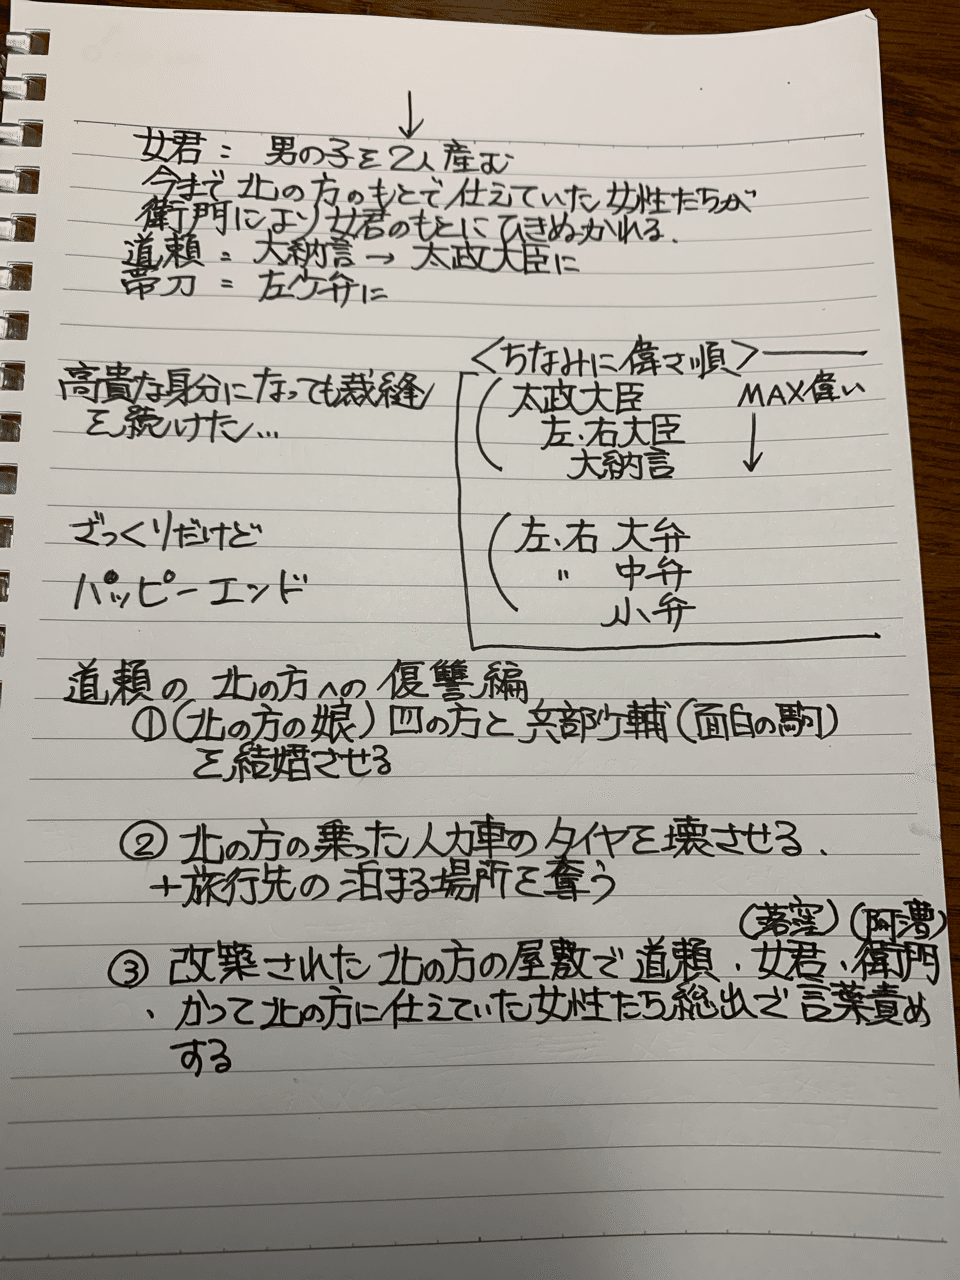 ↓
女君 = 男の子を2人産む
今まで北の方のもとで仕えていた女性たちが
衛門により女君のもとにひきぬかれる.
道頼 = 大納言→太政大臣に
帯刀 = 左少弁に
高貴な身分になっても裁縫
を続けた...
ざっくりだけど
ハッピーエンド
<ちなみに偉さ順>
太政大臣 MAX偉い
左、右大臣 ↓
大納言
左、右 大弁
〃 中弁
小弁
道頼の北の方への復讐編
①(北の方の娘)四の方と兵部少輔(面白の駒)
を結婚させる
②北の方の乗った人力車のタイヤを壊させる.
+旅行先の泊まる場所を奪う
(落窪)(阿漕)
③改築された北の方の屋敷で道頼、女君、衛門
、かって北の方に仕えていた女性たち総出で言葉責め
する